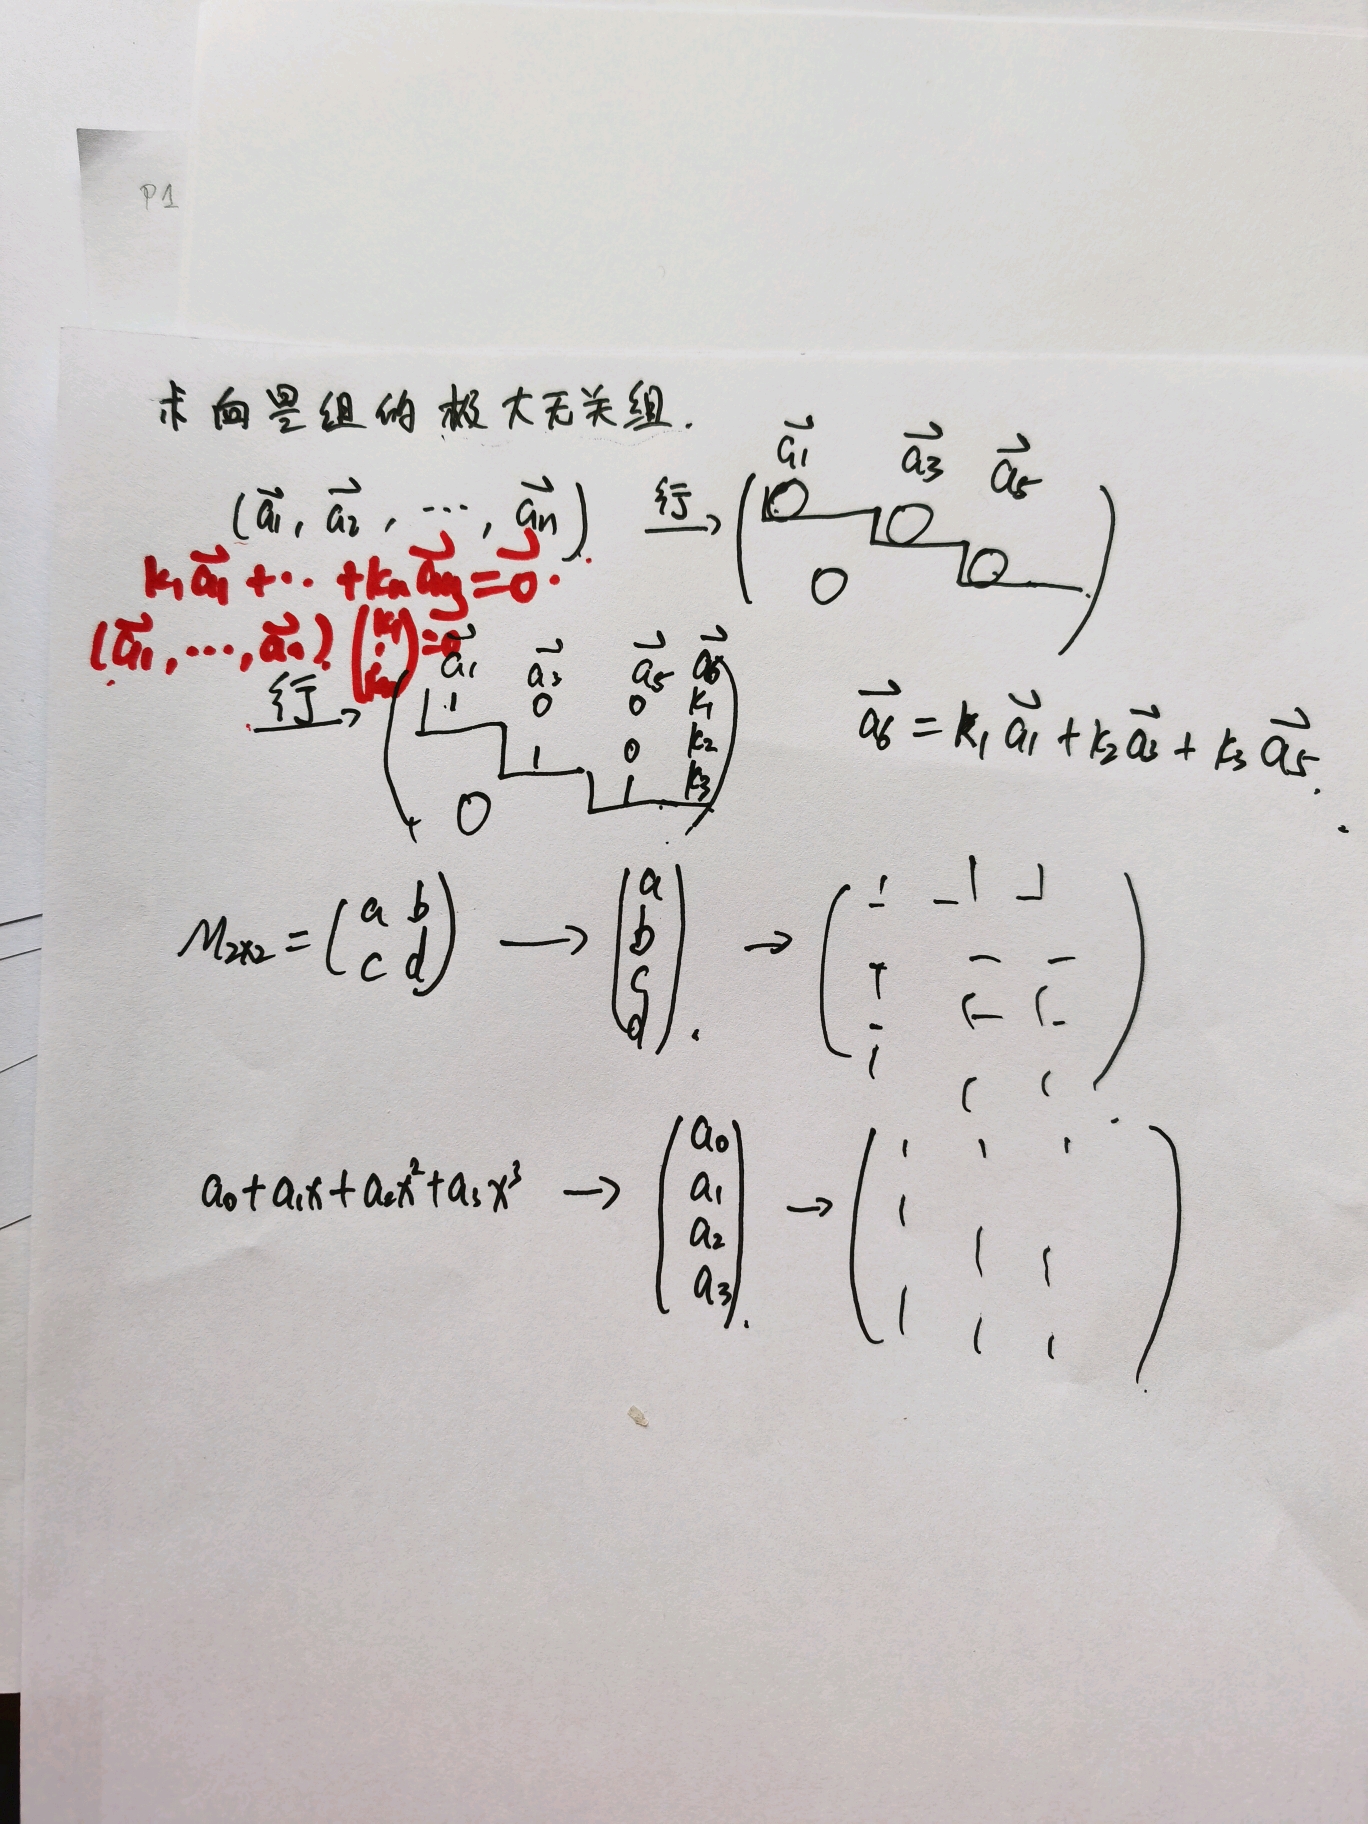 P1
求向量组的极大无关组.
(a⃗1, a⃗2, ⋯, a⃗n) 行→ ( a⃗1 a⃗3 a⃗5 0 )
k1a⃗1+⋯+kna⃗n=0⃗.
(a⃗1,⋯,a⃗n)(k1 ⋮ kn)=0⃗
行→
a⃗1 a⃗3 a⃗5 a⃗6
1 0 0 k1
1 0 k2
0 1 k3
a⃗6 = k1a⃗1+k2a⃗3+k3a⃗5.
M2×2 = (a b c d) → (a b c d). →
a0+a1x+a2x²+a3x³ → (a0 a1 a2 a3). →